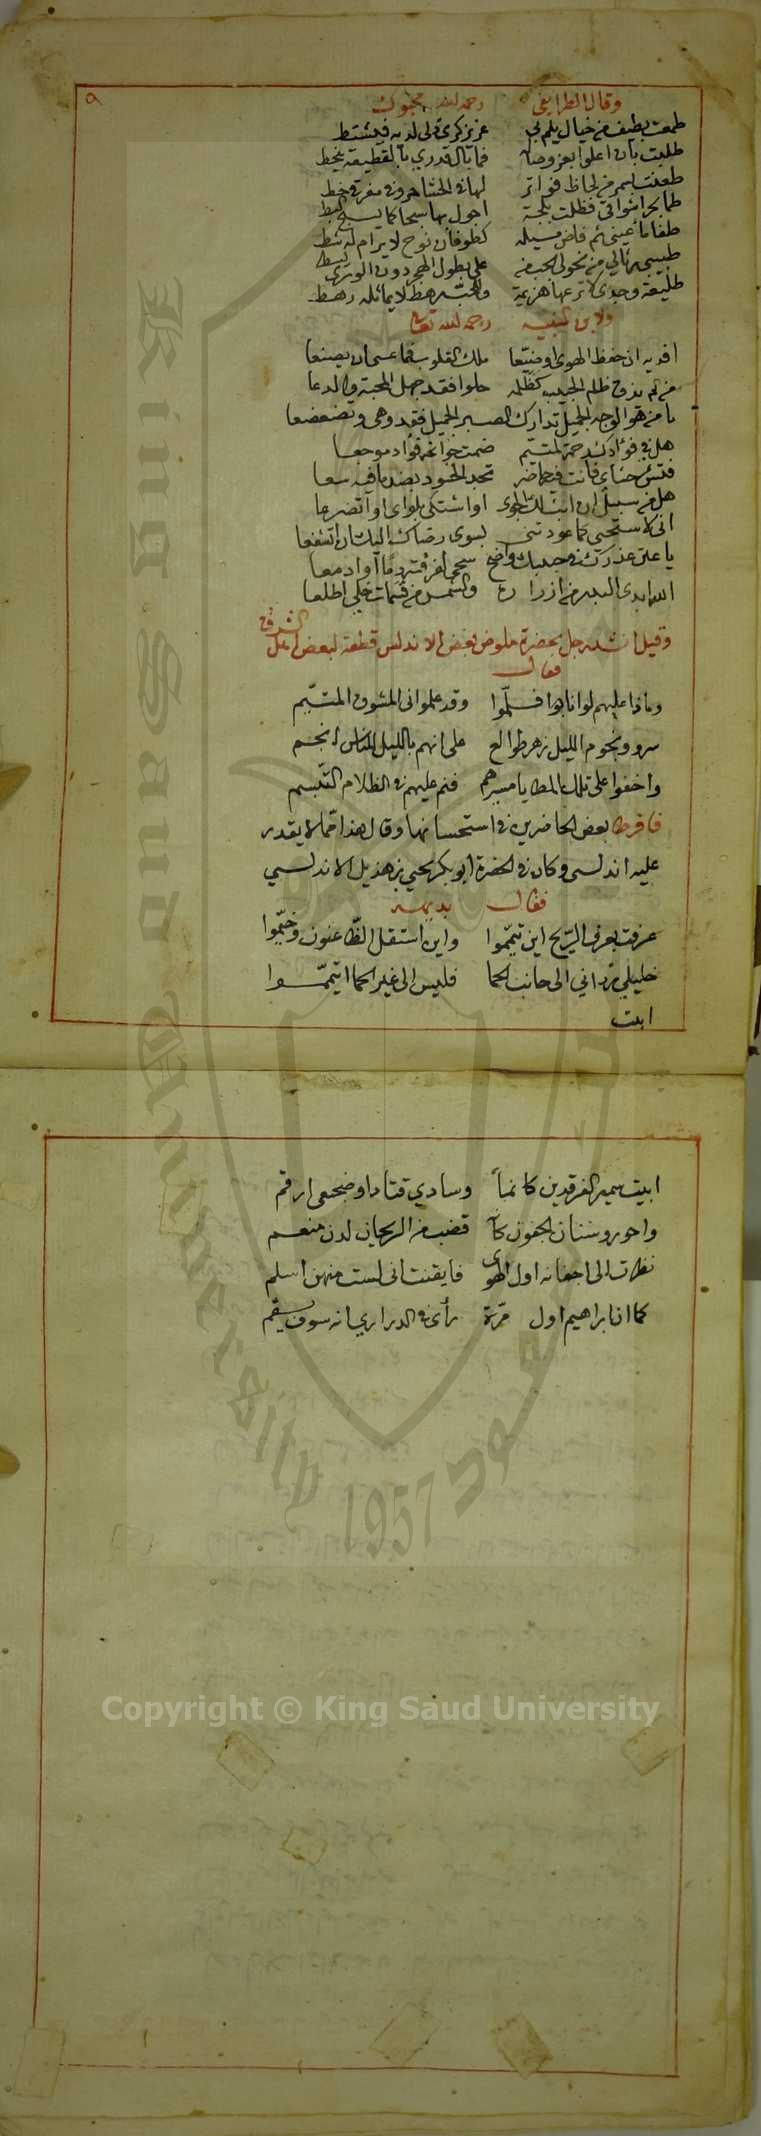 ٩
وقال الطرايفي رحمه الله محبوك
طمعت بطيف من خيال يلم بي عزيز كرى ولى لديه فيشتط
طلبت بأن اعلوا بعز وصاله فما بال قدري بالقطيعة ينحط
طعنت بسمر من لحاظ فواتر لها في الحشا جرو في مفرقي وخط
طما بحر اشواقي فظلت بلجة احول بها سبحا كما يسبح البط
طفا ماء عيني ثم فاض مسيله كطوفان نوح لا يرام له شط
طبيبي رثا لي من نحولي على بطول الهجر دون الورى يسطو
طليعة وجدي هزيمة وللحب رهط لا يماثله رهط
ولابن النبيه رحمه الله تعالى
افديه ان حفظ الهوى او ضيعا ملك القلوب فما عسى ان يصنعا
من لم يذق ظلم الحبيب كظلمه حلوا فقد جهل المحبة وادعا
يا من هو الوجه الجميل تدارك الصبر الجميل فقد وهى وتضعضعا
هل في فؤادك رحمة لمتيم ضمت جوانحه فؤادا موجعا
فتش حشاي فانت فيه حاضر تجد الحسود بضد ما فيه سعا
هل من سبيل ان ابث لك الجوى او اشتكي بلواي او اتضرعا
اني لاستحيي كما عودتني بسوى رضاك اليك ان اتشفعا
يا عين عذرك في حبيبك واضح سحي لفرقته دما او ادمعا
الله ابدى البدر من ازراره والشمس من قسمات خلي اطلعا
وقيل انشد رجل بحضرة ملوض بعض الاندلس قطعة لبعض اهل الشرق
فقال
وماذا عليهم لو انابوا فسلموا وقد علموا اني المشوق المتيم
سرو ونجوم الليل زهر طوالع على انهم بالليل للناس انجم
واخفوا على تلك المطايا مسيرهم فنم عليهم في الظلام التبسم
فافرط بعض الحاضرين في استحسانها وقال هذا مما لا يقدر
عليه اندلسي وكان في الحضرة ابو بكر يحيي بن هذيل الاندلسي
فقال بديهه
عرفت بعرف الريح اين تيمموا واين استقل الظاعنون وخيموا
خليلي رداني الى جانب الحما فليس الى غير الحما اتيمموا
ابيت
ابيت سمير الفرقدين كانما وسادي قتاد او ضجعي ارقم
واحور وسنان الجفون كأنه قضيب من الريحان لدن منعم
نظرت الى اجفانه اول الهوى فايقنت اني لست منهن اسلم
كما ان ابراهيم اول مرة رأى في الدراري انه سوف يسقم
King Saud University
1957
Copyright © King Saud University